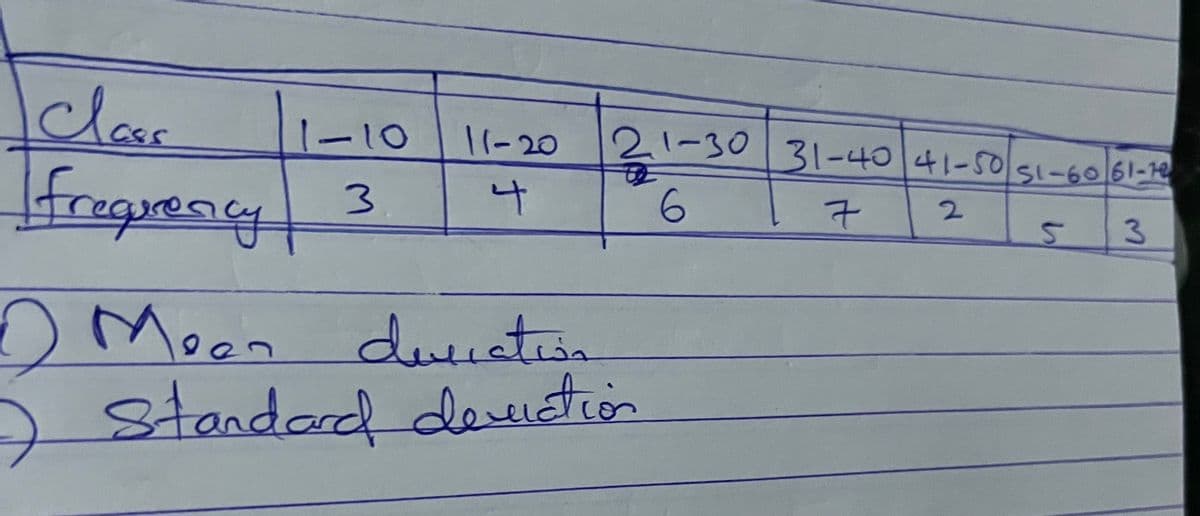 Class 1-10 11-20 21-30 31-40 41-50 51-60 61-70
frequency 3 4 6 7 2 5 3
1) Mean deviation
Standard deviation